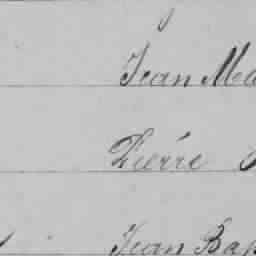 Jean Ma
Pierre
Jean Bap